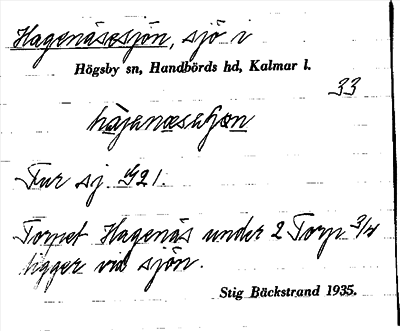 Hagenäsesjön, sjö i
Högsby sn, Handbörds hd, Kalmar l.
33
Fur sj. 921.
Torpet Hagenäs under 2 Torp 3/4
ligger vid sjön.
Stig Bäckstrand 1935.